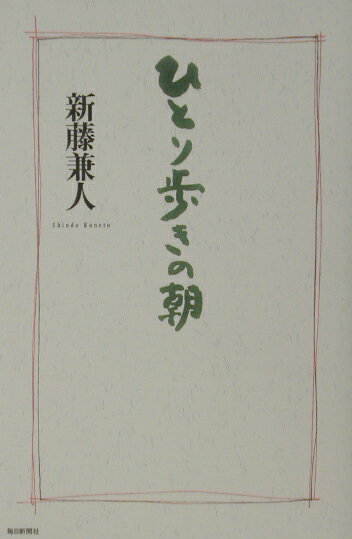 ひとり歩きの朝
新藤兼人
Shindo Kaneto
毎日新聞社